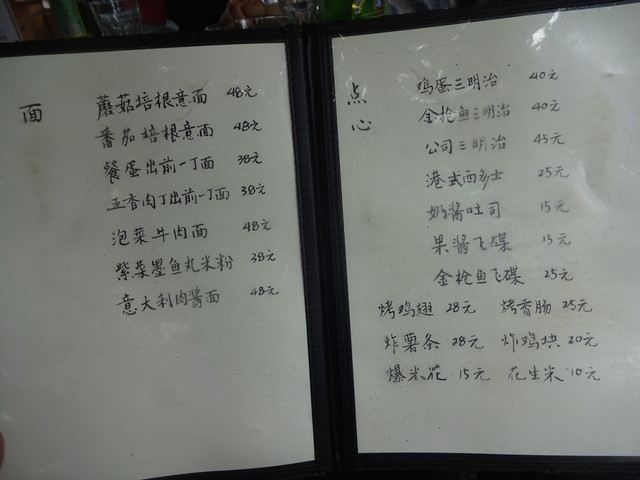 面
蘑菇培根意面 48元
番茄培根意面 48元
餐蛋出前一丁面 38元
五香肉丁出前一丁面 38元
泡菜牛肉面 48元
紫菜墨鱼丸米粉 38元
意大利肉酱面 48元
点心
鸡蛋三明治 40元
金枪鱼三明治 40元
公司三明治 45元
港式西多士 25元
奶酱吐司 15元
果酱飞碟 15元
金枪鱼飞碟 25元
烤鸡翅 28元 烤香肠 25元
炸薯条 28元 炸鸡块 20元
爆米花 15元 花生米 10元